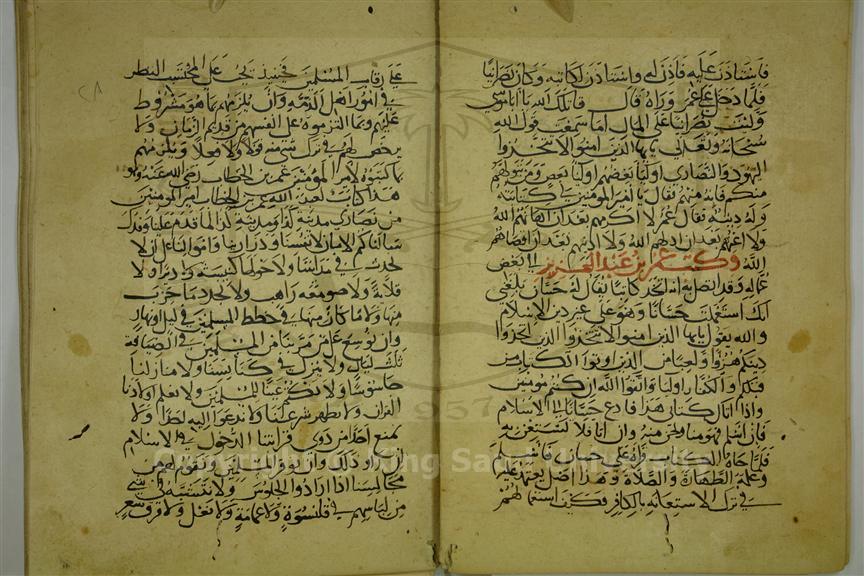 فاستاذن عليه فاذن له واستاذن لكاتبه وكان نصرانيا
فلما دخل على عمر وراه قال قاتلك الله يا ابا موسى
وليت نصرانيا على المال اما سمعت قول الله
سبحانه وتعالى يايها الذين امنوا لا تتخذوا
اليهود والنصارى اوليا بعضهم اوليا بعض ومن يتولهم
منكم فانه منهم فقال يا امير المؤمنين لي كتابته
وله دينه فقال عمر لا اكرمهم بعد ان اهانهم الله
ولا اعزهم بعد ان اذلهم الله ولا ادنيهم بعد ان اقصاهم
الله وكتب عمر بن عبد العزيز الى بعض
عماله وقد اتصل به انه اتخذ كاتبا يقال له حسان بلغني
انك استعملت حسانا وهو على غير دين الاسلام
والله يقول يايها الذين امنوا لا تتخذوا الذين اتخذوا
دينكم هزوا ولعبا من الذين اوتوا الكتاب من
قبلكم والكفار اوليا واتقوا الله ان كنتم مؤمنين
واذا اتاك كتابي هذا فادع حسانا الى الاسلام
فان اسلم فهو منا ونحن منه وان ابا فلا تستعن به
فلما جاه الكتاب قراه على حسان فاسلم
وعلمه الطهارة والصلاة وهذا اصل يعتمد عليه
في ترك الاستعانه بالكافر فكيف استعمالهم
على رقاب المسلمين فحينيذ يجب على المحتسب النظر
في امور اهل الذمة وان يلزمهم بما هو مشروط
عليهم وبما التزموه على انفسهم من قديم الزمان ولا
يرخص لهم في ترك شي منه قولا ولا فعلا ويلزمهم
بما كتبوه لامير المؤمنين عمر بن الخطاب رضي الله عنه وهو
هذا كتاب لعبد الله عمر بن الخطاب امير المؤمنين
من نصارى مدينة كذا ومدينة كذا لما قدم علينا وفدك
سالناكم الامان لانفسنا وذرارينا واموالنا على ان لا
نحدث في مداينا ولا حولها كنيسة ولا ديرا ولا
قلاية ولا صومعة راهب ولا نجدد ما خرب
منها ولا ما كان منها في خطط المسلمين في ليل او نهار
وان نوسع على من مر بنا من المسلمين في الضيافة
ثلاث ليالي ولا ننزل في كنايسنا ولا منازلنا
جاسوسا ولا نكتم عينا للمسلمين ولا نعلم اولادنا
القران ولا نظهر شرعنا ولا ندعوا اليه احدا ولا
نمنع احدا من ذوي قرابتنا الدخول في الاسلام
ان اراد ذلك وان نوقر المسلمين ونقوم لهم من
مجالسنا اذا ارادوا الجلوس ولا نتشبه في شي
من لباسهم في قلنسوة ولا عمامة ولا نعل ولا فرق شعر
Copyright © King Saud University
1957